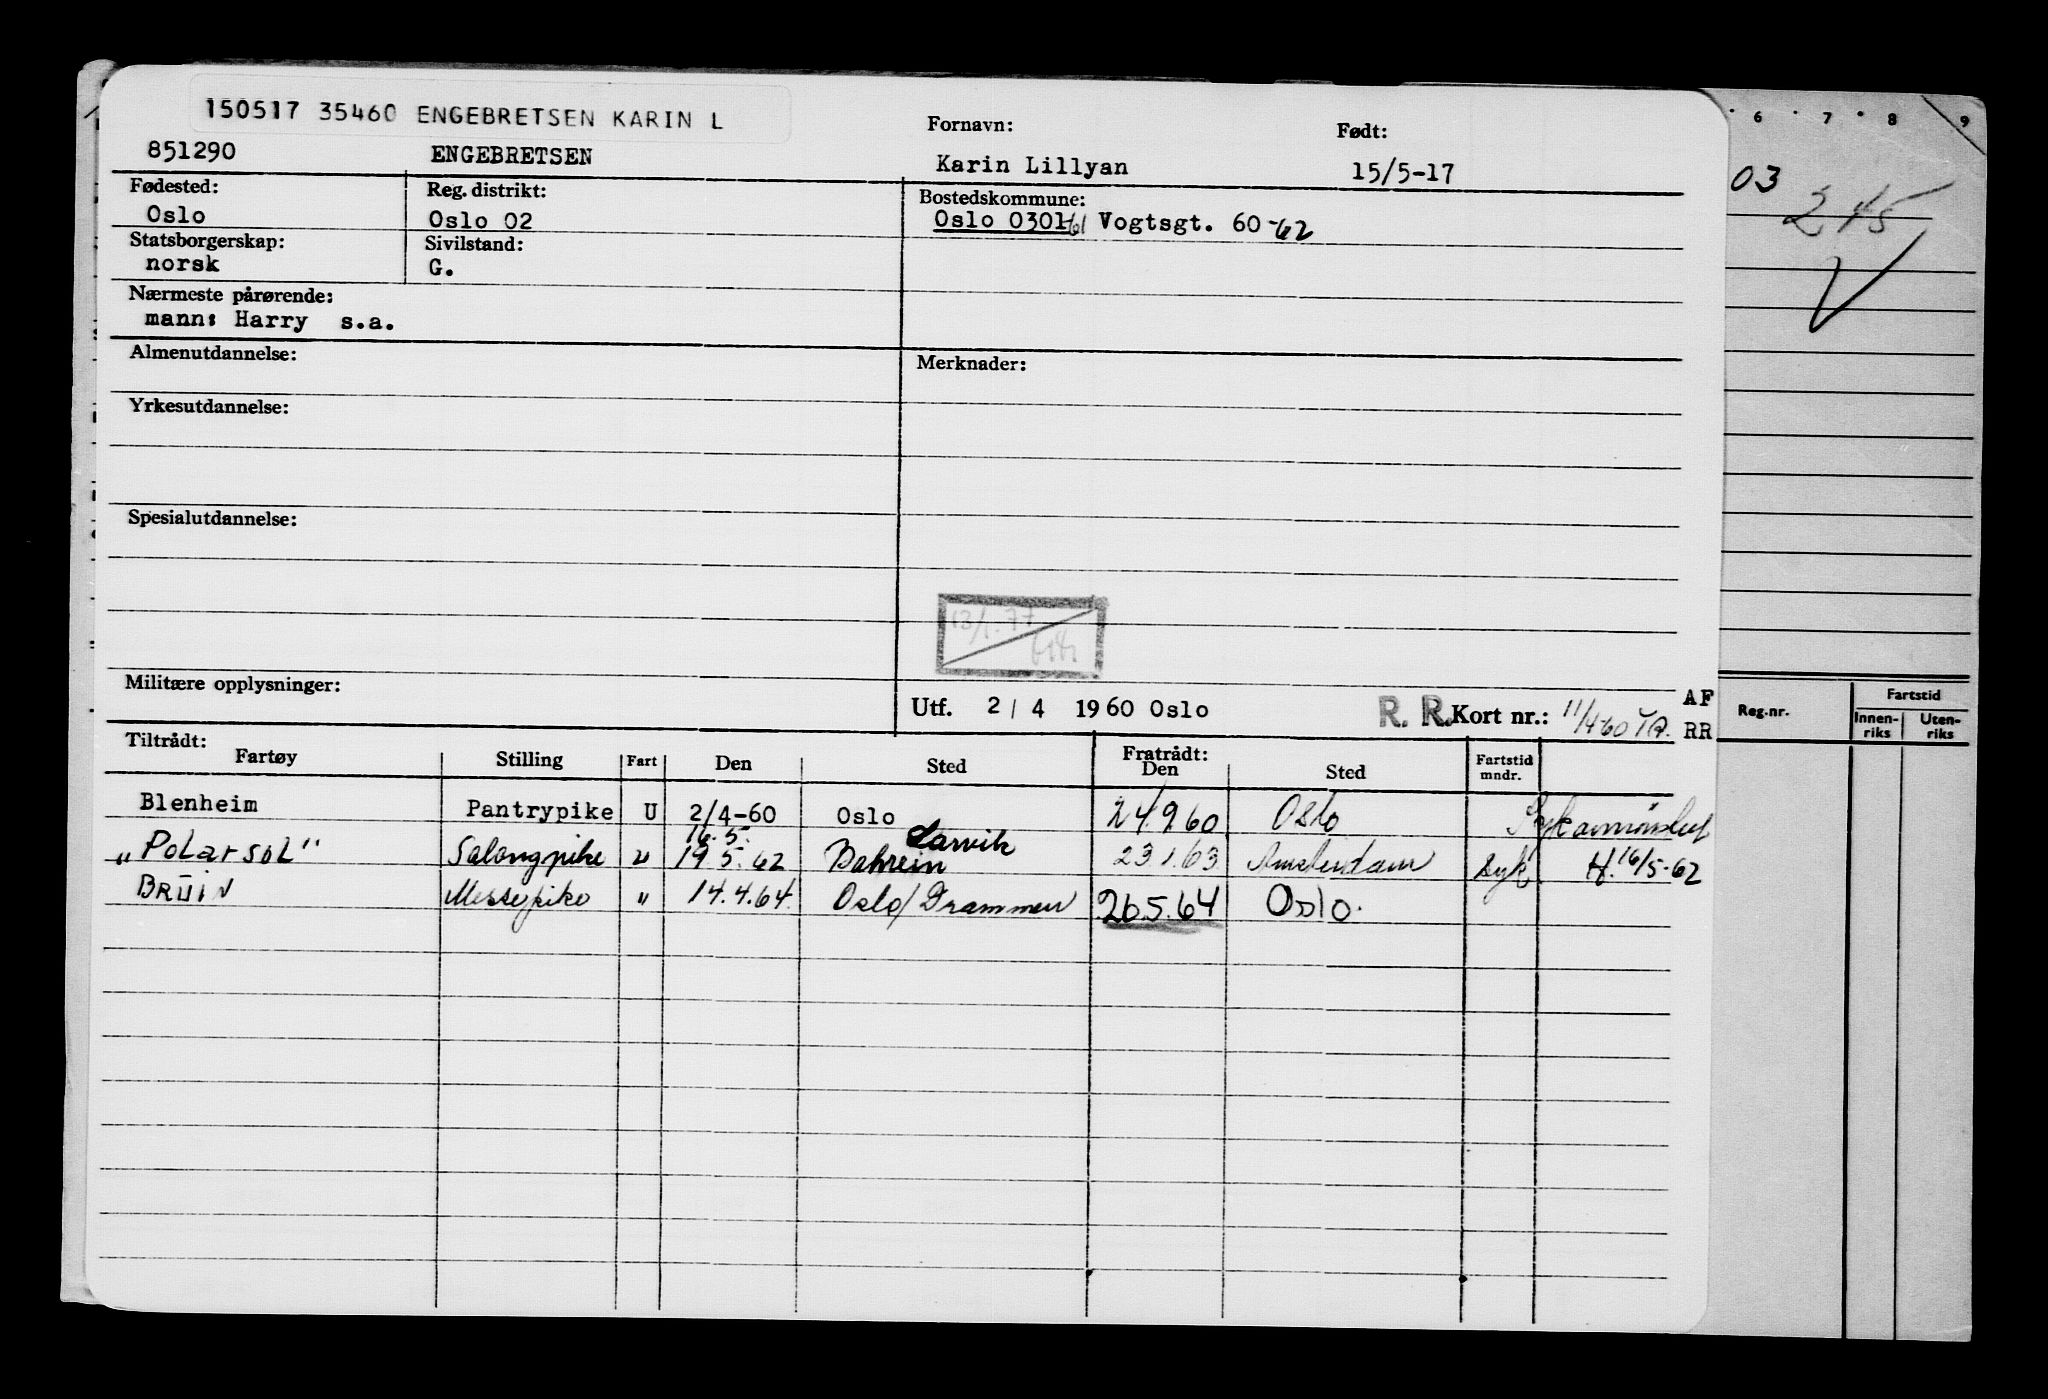 150517 35460 ENGEBRETSEN KARIN L
851290 ENGEBRETSEN
Fornavn: Karin Lillyan
Født: 15/5-17
Fødested: Oslo
Reg. distrikt: Oslo 02
Bostedskommune: Oslo 0301/61 Vogtsgt. 60-62
Statsborgerskap: norsk
Sivilstand: G.
Nærmeste pårørende:
mann: Harry s.a.
Almenutdannelse:
Merknader:
Yrkesutdannelse:
Spesialutdannelse:
13/1.77
Militære opplysninger:
Utf. 2/4 1960 Oslo
R. R. Kort nr.: 11/4-60
AF
RR
Tiltrådt: Fratrådt:
Fartøy Stilling Fart Den Sted Den Sted Fartstid mndr.
Blenheim Pantrypike U 2/4-60 Oslo 24.9.60 Oslo
16.5. Larvik
„Polarsol" Salongpike " 19.5.62 Bahrein 23.1.63 Amsterdam syk H. 16/5-62
BRUIN Messepike " 14.4.64. Oslo/Drammen 26.5.64 Oslo.
6 7 8 9
03
245
Reg.nr.
Fartstid
Innen-riks
Uten-riks